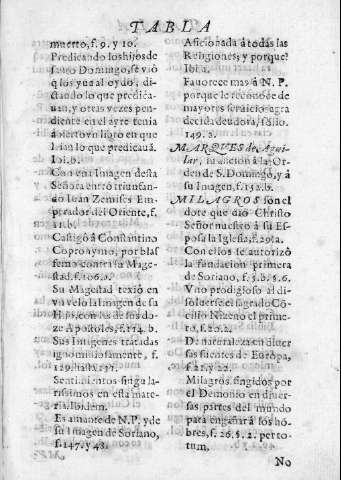 TABLA
muerto, f. 9. y 10.
Predicando los hijos de
santo Domingo, se viò
q los yua al oydo, di-
ctando lo que predica-
uan, y otras vezes pen-
diente en el ayre tenia
abierto vn libro en que
leian lo que predicauã.
Ibi. b.
Con vna Imagen desta
Señora entrò triunfan-
do Iuan Zemises Em-
perador del Oriente, f.
Castigò à Constantino
Copronymo, por blas
femo contra su Mage-
stad. f. 106. a.
Su Magestad texiò en
vn velo la Imagen de su
Hijo, con los de los do-
ze Apostoles, f. 114. b.
Sus Imagines tratadas
ignominiosamente, f.
129. hasta 131.
Sentimientos singula-
rissimos en esta mate-
ria. Ibidem.
Es amante de N. P. y de
su Imagen de Soriano,
f. 147. y 48.
Aficionada à todas las
Religiones, y porque?
Ibi. a.
Fauorece mas à N. P.
porque le reconoce de
mayores seruicios agra
decida deudora, folio.
149. a.
MARQVES de Aguilar,
su aficion à la Or-
den de S. Domingo, y à
su Imagen, f. 152. b.
MILAGROS son el
dote que diò Christo
Señor nuestro à su Es-
posa la Iglesia, f. 29. a.
Con ellos se autorizò
la fundacion primera
de Soriano, f. 5. b. 5. 6.
Vno prodigioso al di-
soluerse el sagrado Cō-
cilio Nizeno el prime-
ro, f. 20. a.
De naturaleza en diuer
sas fuentes de Europa,
f. 21. y 22.
Milagros fingidos por
el Demonio en diuer-
sas partes del mundo
para engañar à los hō-
bres, f. 26. 5. 2. per to-
tum.
No